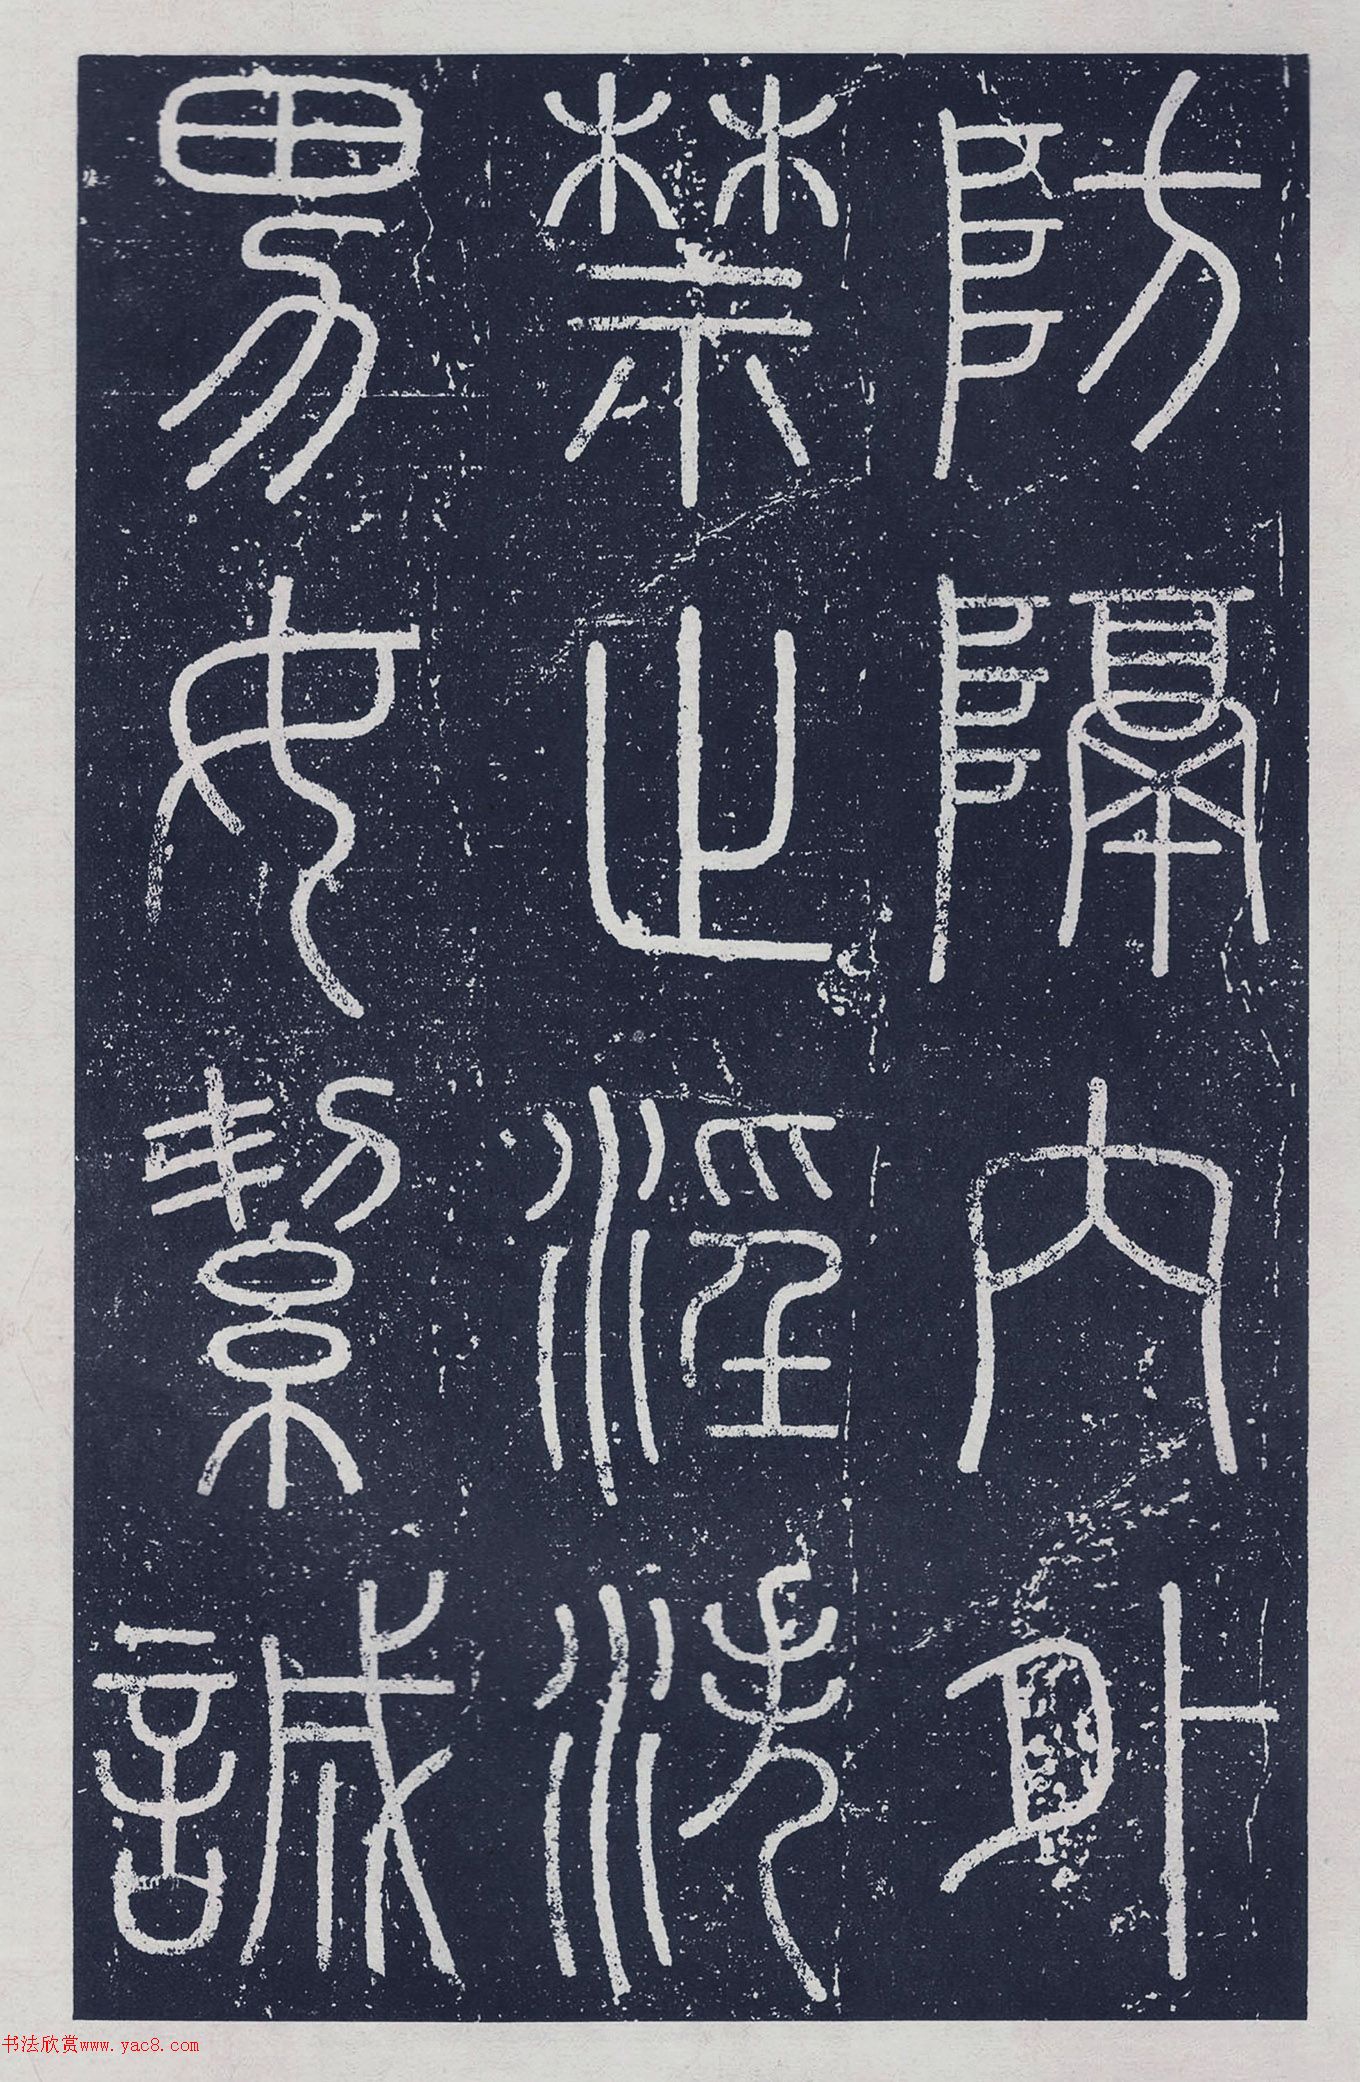 防隔内外
禁止淫泆
男女絜誠
书法欣赏www.yac8.com